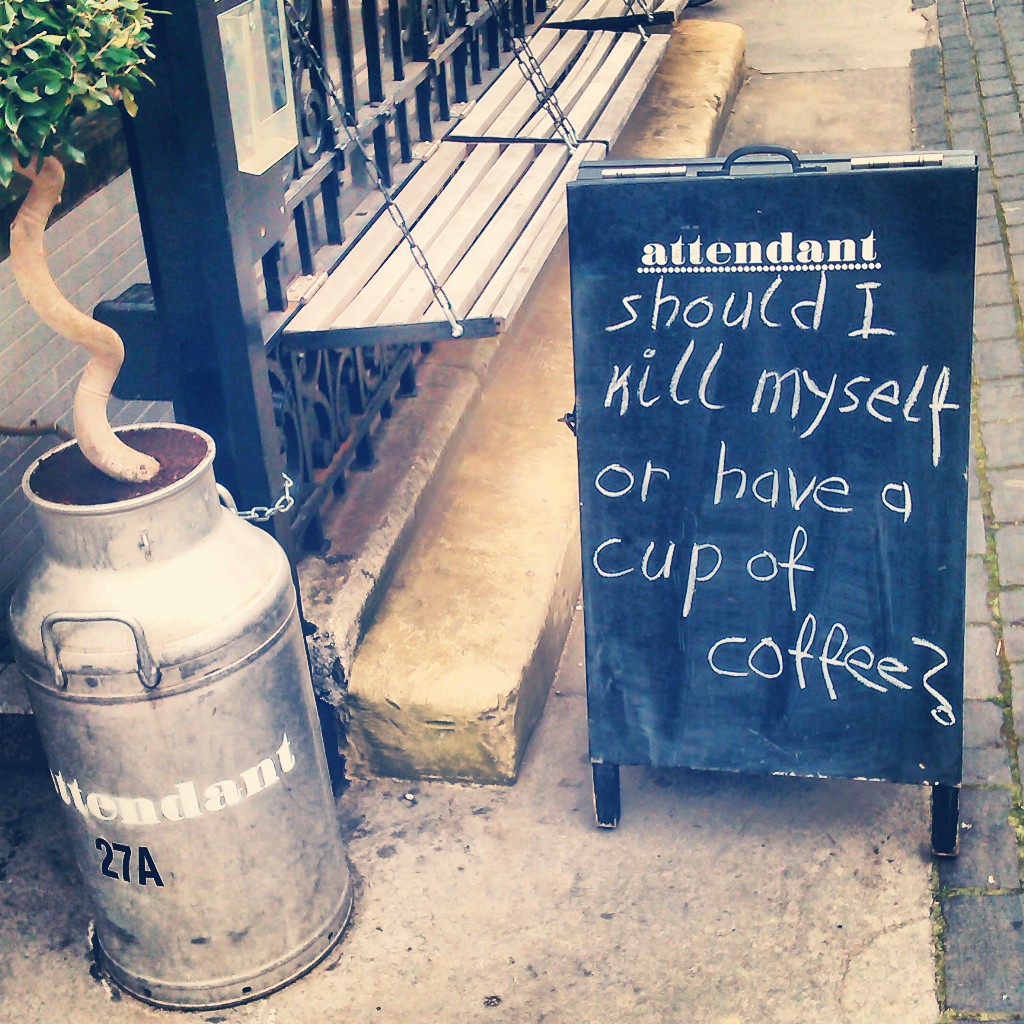 attendant
should I
kill myself
or have a
cup of
coffee?
attendant
27A